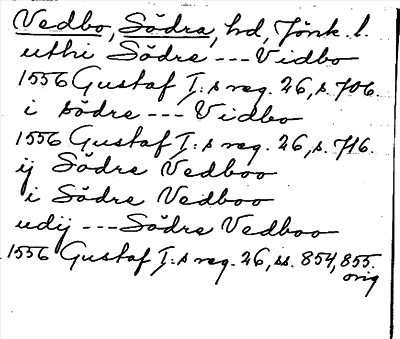 Vedbo, Södra, hd, Jönk. l.
uthi Södre --- Vidbo
1556 Gustaf I:s reg. 26, s. 706.
i södre --- Vidbo
1556 Gustaf I:s reg. 26, s. 716.
ij Södre Vedboo
i Södre Vedboo
udij --- Södre Vedboo
1556 Gustaf I:s reg. 26, ss. 854, 855.
orig